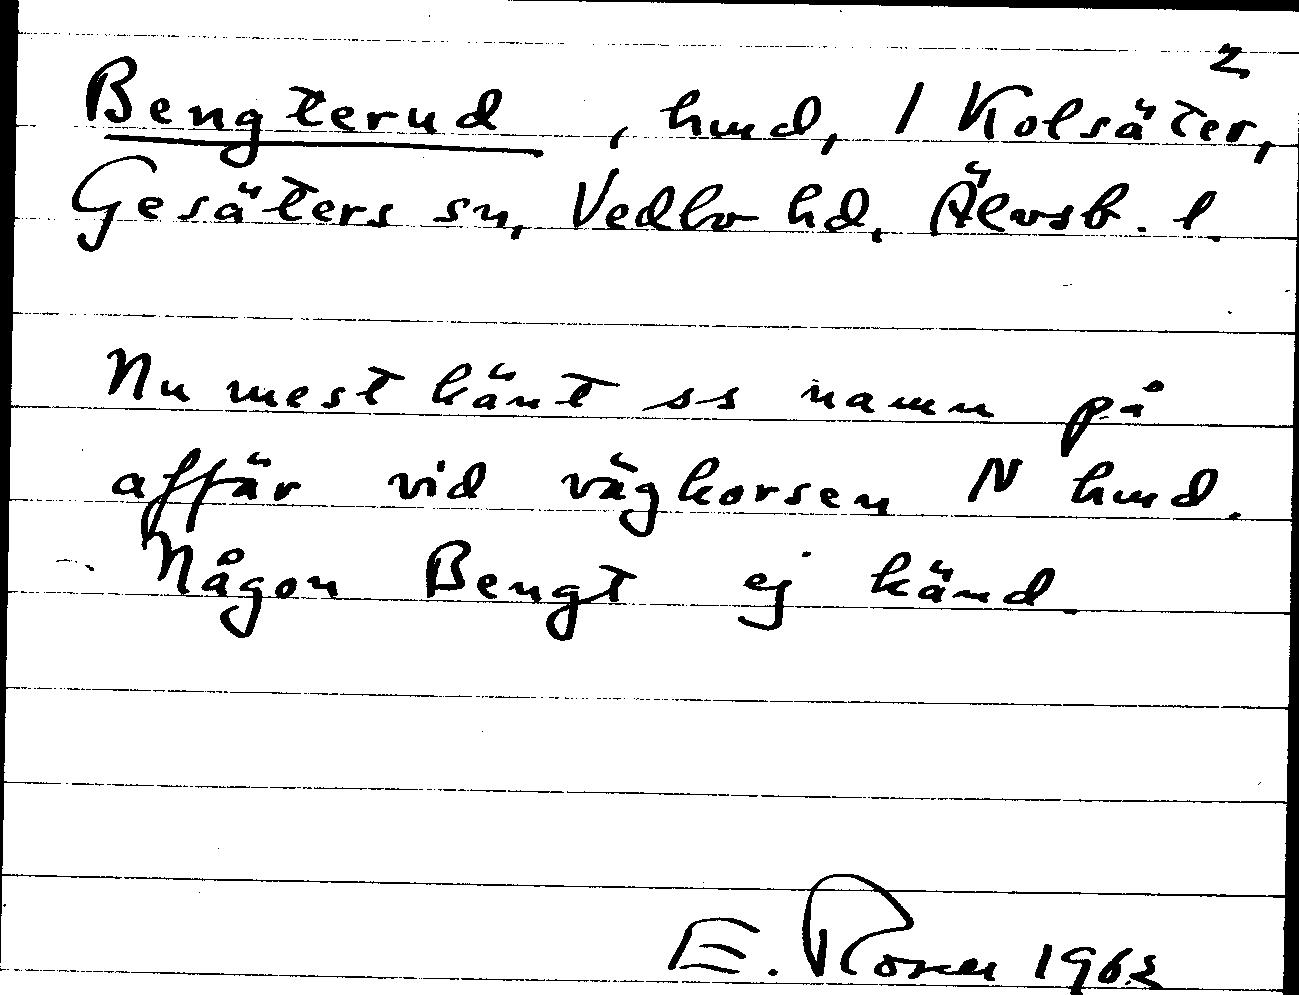 2
Bengterud, hmd, 1 Kolsäter,
Gesäters sn, Vedbo hd, Älvsb. l.
Nu mest känt ss namn på
affär vid vägkorsen N hmd.
Någon Bengt ej känd.
E. Rosen 1962